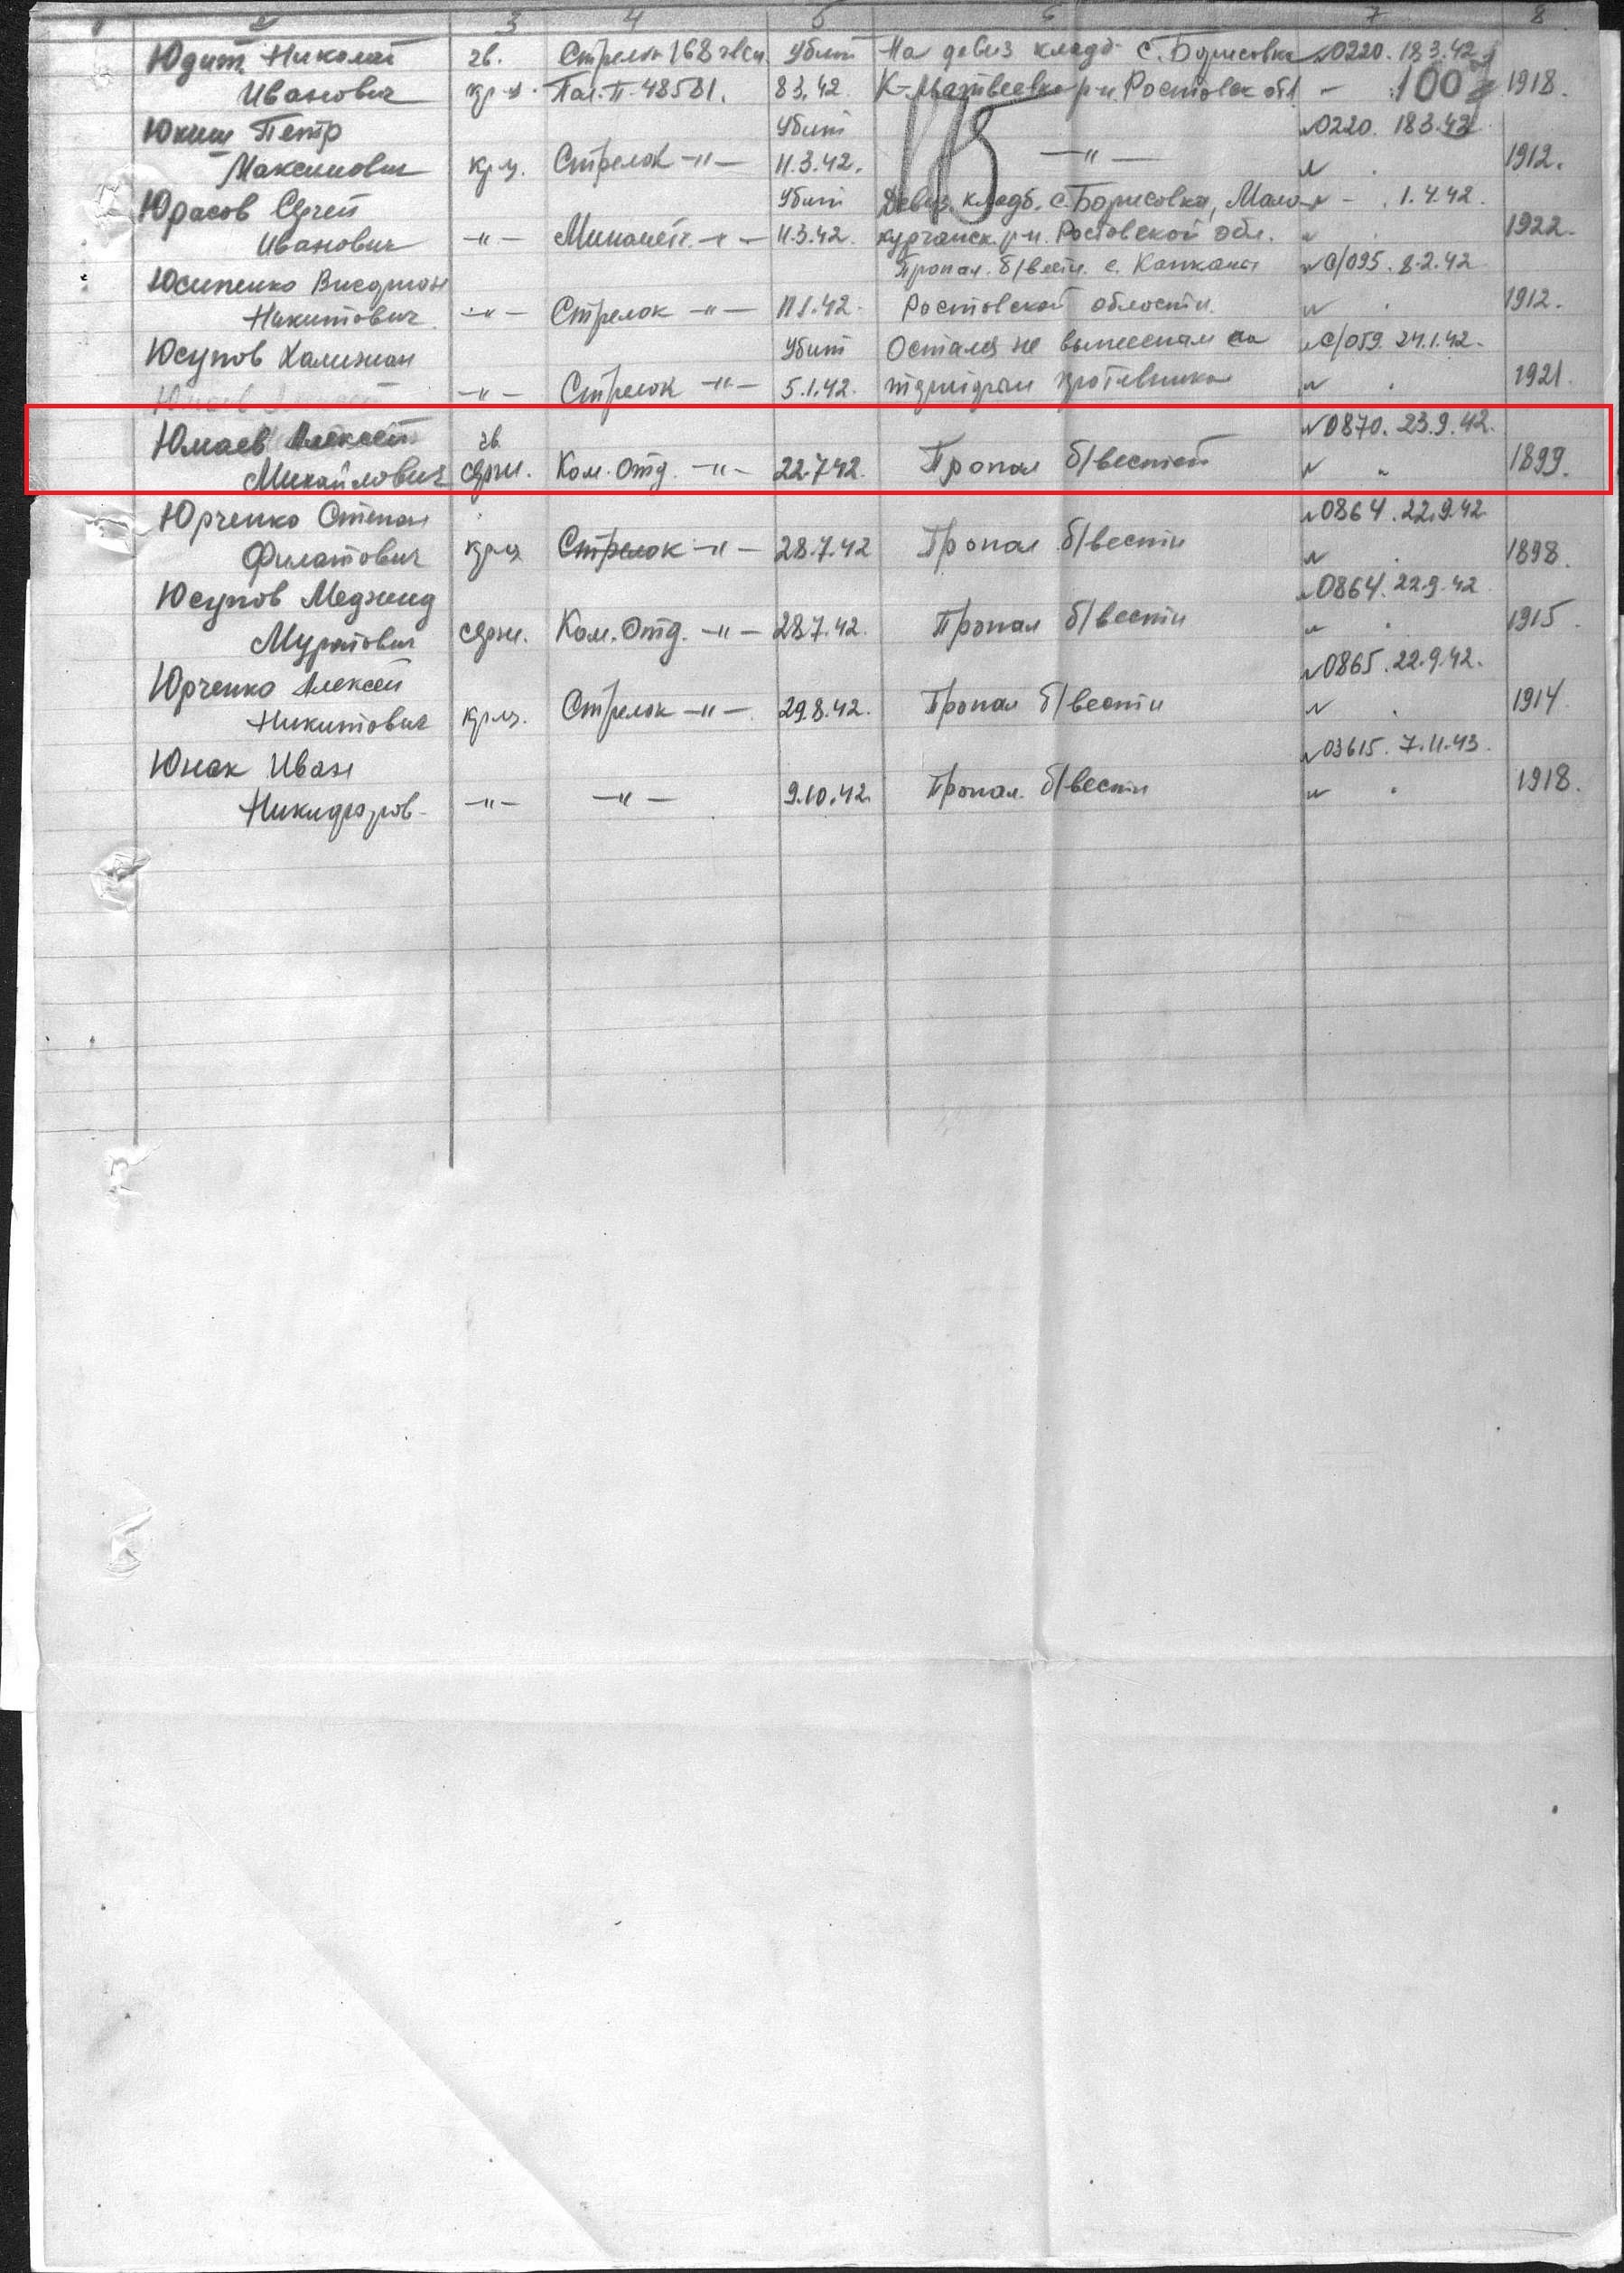 2 3 4 5 6 7 8
Юдит Николай гв. Стрелок 168 гвсп Убит На дивиз кладб. с. Борисовка №0220. 18.3.42
Иванович кр-ц. Пол. П. 48581. 8.3.42 К-Матвеевка р-н. Ростовск обл 100 1918.
Петр Убит №0220. 18.3.42
Максимович кр-ц. Стрелок -"- 11.3.42. 115 -"- 1912.
Юрасов Сергей Убит Дивиз. кладб. с. Борисовка, Мало №- . 1.4.42.
Иванович -"- Миномётч. -"- 11.3.42. курганск. р-н. Ростовской обл. 1922.
Юсипенко Пропал. б/вести. с. №С/095. 8.2.42
Никитович -"- Стрелок -"- 11.1.42. Ростовской области. 1912.
Юсупов Халижан Убит Остался не вынесенным на №С/059. 24.1.42.
-"- Стрелок -"- 5.1.42. территории противника 1921.
Юмаев Алексей гв. №0870. 23.9.42.
Михайлович серж. Ком. Отд. -"- 22.7.42. Пропал б/вестей " 1899.
Юрченко Степан №0864. 22.9.42
Филатович кр-ц Стрелок -"- 28.7.42 Пропал б/вести 1898.
Юсупов Меджид №0864. 22.9.42
Муратович серж. Ком. Отд. -"- 28.7.42. Пропал б/вести 1915.
Юрченко Алексей №0865. 22.9.42.
Никитович кр-ц. Стрелок -"- 29.8.42. Пропал б/вести 1914.
Юнак Иван №03615. 7.11.43.
Никифоров- -"- -"- 9.10.42. Пропал. б/вести 1918.